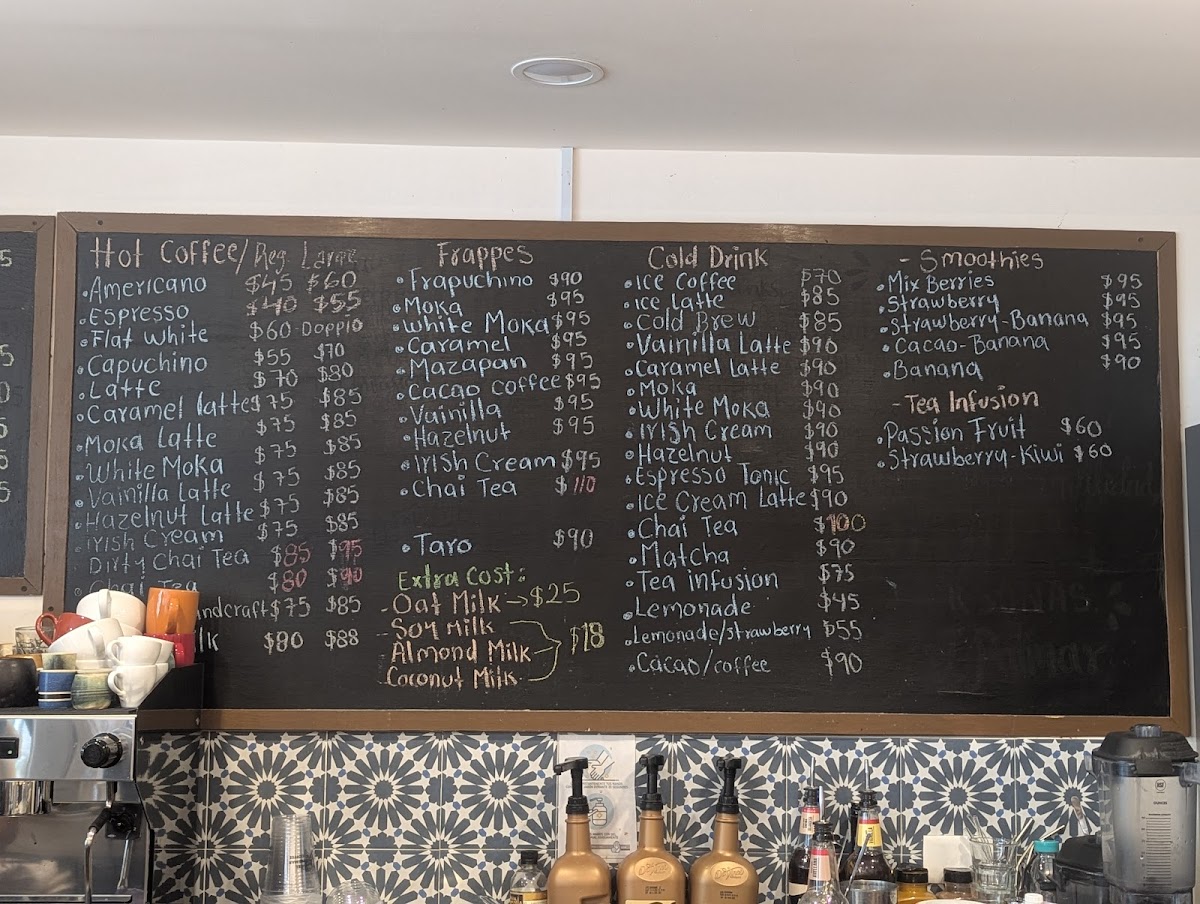 Hot Coffee/Reg. Large
Americano $45 $60
Espresso $40 $55
Flat White $60-Doppio
Capuchino $55 $70
Latte $70 $80
Caramel latte $75 $85
Moka Latte $75 $85
White Moka $75 $85
Vainilla Latte $75 $85
Hazelnut Latte $75 $85
Irish Cream $75 $85
Dirty Chai Tea $85 $95
Chai Tea $80 $90
$75 $85
$80 $88
Frappes
Frapuchino $90
Moka $95
White Moka $95
Caramel $95
Mazapan $95
Cacao coffee $95
Vainilla $95
Hazelnut $95
Irish Cream $95
Chai Tea $110
Taro $90
Extra Cost:
- Oat Milk → $25
- Soy Milk
- Almond Milk $18
- Coconut Milk
Cold Drink
Ice Coffee $70
Ice Latte $85
Cold Brew $85
Vainilla Latte $90
Caramel Latte $90
Moka $90
White Moka $90
Irish Cream $90
Hazelnut $90
Espresso Tonic $95
Ice Cream Latte $90
Chai Tea $100
Matcha $90
Tea infusion $75
Lemonade $45
Lemonade/strawberry $55
Cacao/coffee $90
- Smoothies
Mix Berries $95
Strawberry $95
Strawberry-Banana $95
Cacao-Banana $95
Banana $90
- Tea Infusion
Passion Fruit $60
Strawberry-Kiwi $60